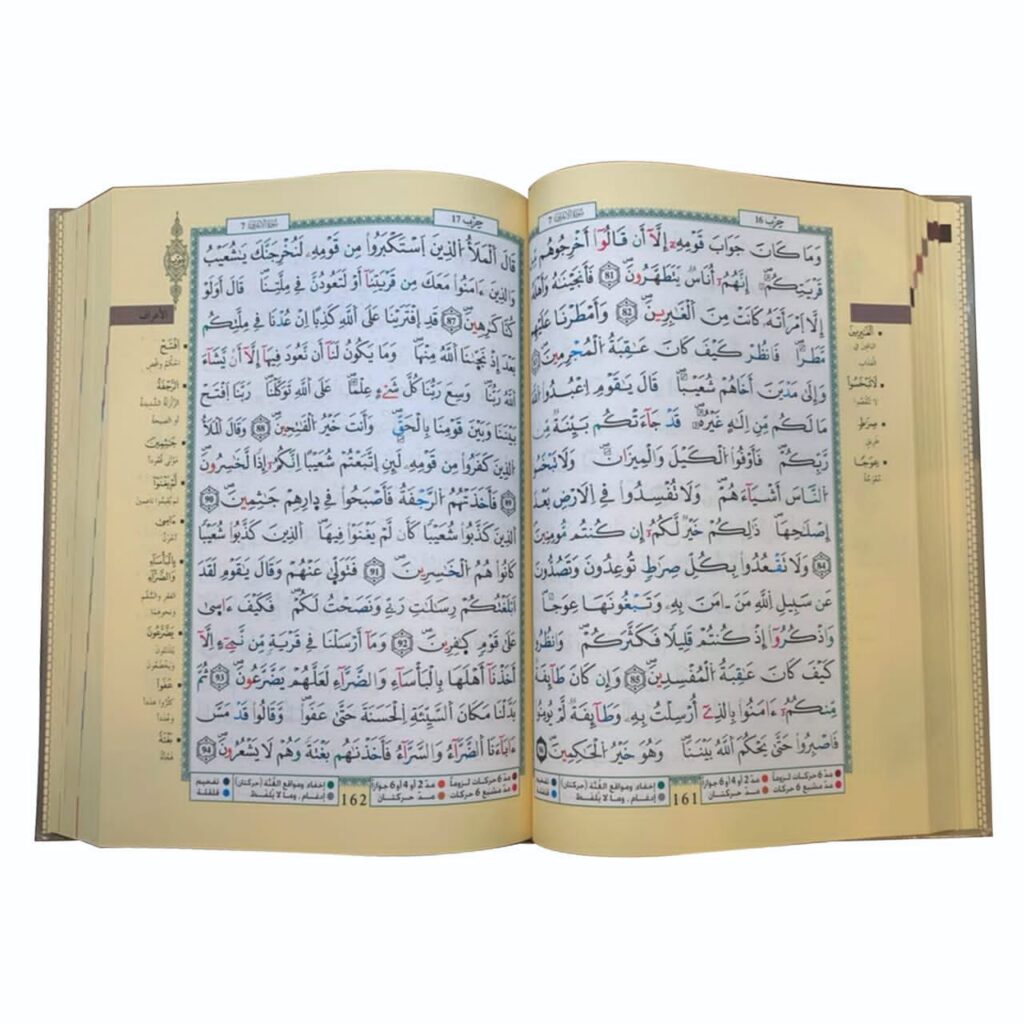 حِزْب 16
سُورَةُ الأَعْرَافِ 7
وَمَا كَانَ جَوَابَ قَوْمِهِۦٓ إِلَّآ أَن قَالُوٓا۟ أَخْرِجُوهُم
قَرْيَتِكُمُۥٓ إِنَّهُمُۥٓ أُنَاسٌ يَتَطَهَّرُونَ 81 فَأَنجَيْنَٰهُ وَأَهْلَهُ
إِلَّا اَمْرَأَتَهُۥ كَانَتْ مِنَ اَلْغَٰبِرِينَ 82 وَأَمْطَرْنَا عَلَيْهِم
مَّطَرًا فَانظُرْ كَيْفَ كَانَ عَٰقِبَةُ اُلْمُجْرِمِينَ
وَإِلَىٰ مَدْيَنَ أَخَاهُمْ شُعَيْبًا قَالَ يَٰقَوْمِ اِعْبُدُوا۟ اُللَّهَ
مَا لَكُم مِّنِ اِلَٰهٍ غَيْرُهُۥ قَدْ جَآءَتْكُم بَيِّنَةٌ مِّن
رَّبِّكُمْ فَأَوْفُوا۟ اُلْكَيْلَ وَالْمِيزَانَ وَلَا تَبْخَسُوا۟
اُلنَّاسَ أَشْيَآءَهُمْ وَلَا تُفْسِدُوا۟ فِى اِلَارْضِ بَعْدَ
إِصْلَٰحِهَا ذَٰلِكُمْ خَيْرٌ لَّكُمُۥٓ إِن كُنتُم مُّومِنِينَ
84 وَلَا تَقْعُدُوا۟ بِكُلِّ صِرَٰطٍ تُوعِدُونَ وَتَصُدُّونَ
عَن سَبِيلِ اِللَّهِ مَنَ ـ امَنَ بِهِۦ وَتَبْغُونَهَا عِوَجًا
وَاذْكُرُوٓا۟ إِذْ كُنتُمْ قَلِيلًا فَكَثَّرَكُمْ وَانظُرُوا۟
كَيْفَ كَانَ عَٰقِبَةُ اُلْمُفْسِدِينَ 85 وَإِن كَانَ طَآئِفَةٌ
مِّنكُمُۥٓ ءَامَنُوا۟ بِالذِىٓ أُرْسِلْتُ بِهِۦ وَطَآئِفَةٌ لَّمْ يُومِنُوا۟
فَاصْبِرُوا۟ حَتَّىٰ يَحْكُمَ اَللَّهُ بَيْنَنَا وَهُوَ خَيْرُ اُلْحَٰكِمِينَ 86
مدّ 6 حركات لزوماً مدّ 2 أو 4 أو 6 جوازاً إخفاء ومواقع الغُنَّة (حركتان) تفخيم
مدّ مشبع 6 حركات مدّ حركتان إدغام، وما لا يُلفَظ قلقلة
161
الْغَٰبِرِينَ
لَا تَبْخَسُوا۟
لا تنقصوا
صِرَٰطٍ
طريق
عِوَجًا
حِزْب 17
سُورَةُ الأَعْرَافِ 7
قَالَ اَلْمَلَأُ اُلذِينَ اَسْتَكْبَرُوا۟ مِن قَوْمِهِۦ لَنُخْرِجَنَّكَ يَٰشُعَيْبُ
وَالذِينَ ءَامَنُوا۟ مَعَكَ مِن قَرْيَتِنَآ أَوْ لَتَعُودُنَّ فِى مِلَّتِنَا قَالَ أَوَلَوْ
كُنَّا كَٰرِهِينَ 87 قَدِ اِفْتَرَيْنَا عَلَى اَللَّهِ كَذِبًا اِنْ عُدْنَا فِى مِلَّتِكُم
بَعْدَ إِذْ نَجَّىٰنَا اَللَّهُ مِنْهَا وَمَا يَكُونُ لَنَآ أَن نَّعُودَ فِيهَآ إِلَّآ أَنْ يَّشَآءَ
اَللَّهُ رَبُّنَا وَسِعَ رَبُّنَا كُلَّ شَىْءٍ عِلْمًا عَلَى اَللَّهِ تَوَكَّلْنَا رَبَّنَا اَفْتَحْ
بَيْنَنَا وَبَيْنَ قَوْمِنَا بِالْحَقِّ وَأَنتَ خَيْرُ اُلْفَٰتِحِينَ 88 وَقَالَ اَلْمَلَأُ
اُلذِينَ كَفَرُوا۟ مِن قَوْمِهِۦ لَئِنِ اِتَّبَعْتُمْ شُعَيْبًا اِنَّكُمُۥٓ إِذًا لَّخَٰسِرُونَ
89 فَأَخَذَتْهُمُ اُلرَّجْفَةُ فَأَصْبَحُوا۟ فِى دِارِهِمْ جَٰثِمِينَ 90
اَلذِينَ كَذَّبُوا۟ شُعَيْبًا كَأَن لَّمْ يَغْنَوْا۟ فِيهَا اَلذِينَ كَذَّبُوا۟ شُعَيْبًا
كَانُوا۟ هُمُ اُلْخَٰسِرِينَ 91 فَتَوَلَّىٰ عَنْهُمْ وَقَالَ يَٰقَوْمِ لَقَدَ
اَبْلَغْتُكُمْ رِسَٰلَٰتِ رَبِّى وَنَصَحْتُ لَكُمْ فَكَيْفَ ءَاسِىٰ
عَلَىٰ قَوْمٍ كٰ۪فِرِينَ 92 وَمَآ أَرْسَلْنَا فِى قَرْيَةٍ مِّن نَّبِىٓءٍ اِلَّآ
أَخَذْنَآ أَهْلَهَا بِالْبَأْسَآءِ وَالضَّرَّآءِ لَعَلَّهُمْ يَضَّرَّعُونَ 93 ثُمَّ
بَدَّلْنَا مَكَانَ اَلسَّيِّئَةِ اِلْحَسَنَةَ حَتَّىٰ عَفَوا۟ وَّقَالُوا۟ قَدْ مَسَّ
ءَابَآءَنَا اَلضَّرَّآءُ وَالسَّرَّآءُ فَأَخَذْنَٰهُم بَغْتَةً وَهُمْ لَا يَشْعُرُونَ 94
مدّ 6 حركات لزوماً مدّ 2 أو 4 أو 6 جوازاً إخفاء ومواقع الغُنَّة (حركتان) تفخيم
مدّ مشبع 6 حركات مدّ حركتان إدغام، وما لا يُلفَظ قلقلة
162
الأعراف
افْتَحْ
الرَّجْفَةُ
الزلزلة الشديدة
أو الصيحة
جَٰثِمِينَ
لَمْ يَغْنَوْا۟
ءَاسِىٰ
بِالْبَأْسَآءِ
وَالضَّرَّآءِ
الفقر والسُّقم
يَضَّرَّعُونَ
عَفَوا۟
بَغْتَةً
فجأة